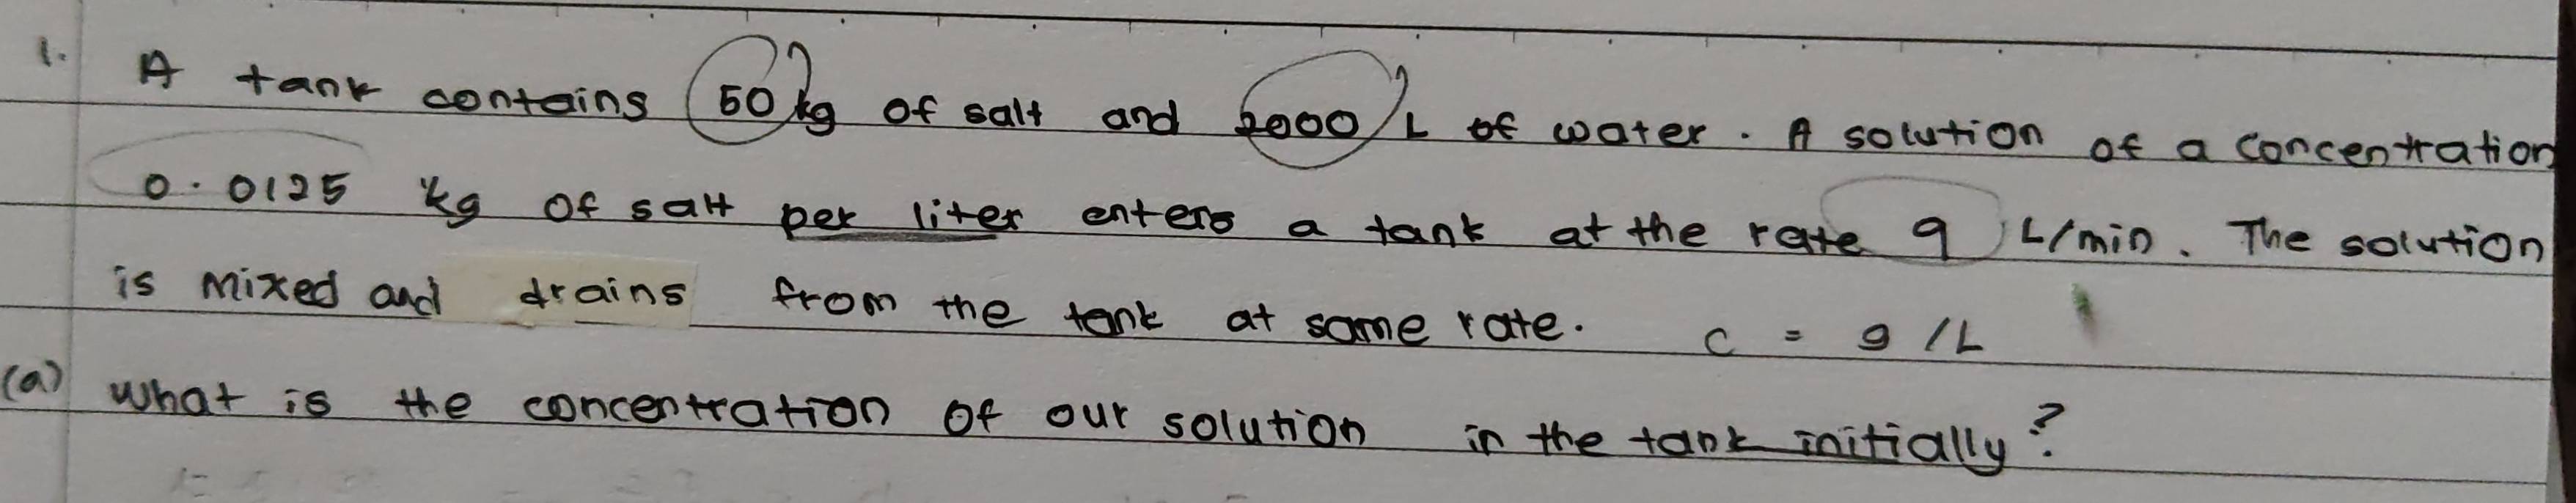 1. A tank contains 50 kg of salt and 2000 L of water. A solution of a concentration
0.0125 kg of salt per liter enters a tank at the rate 9 L/min. The solution
is mixed and drains from the tank at same rate. C = g/L
(a) What is the concentration of our solution in the tank initially?